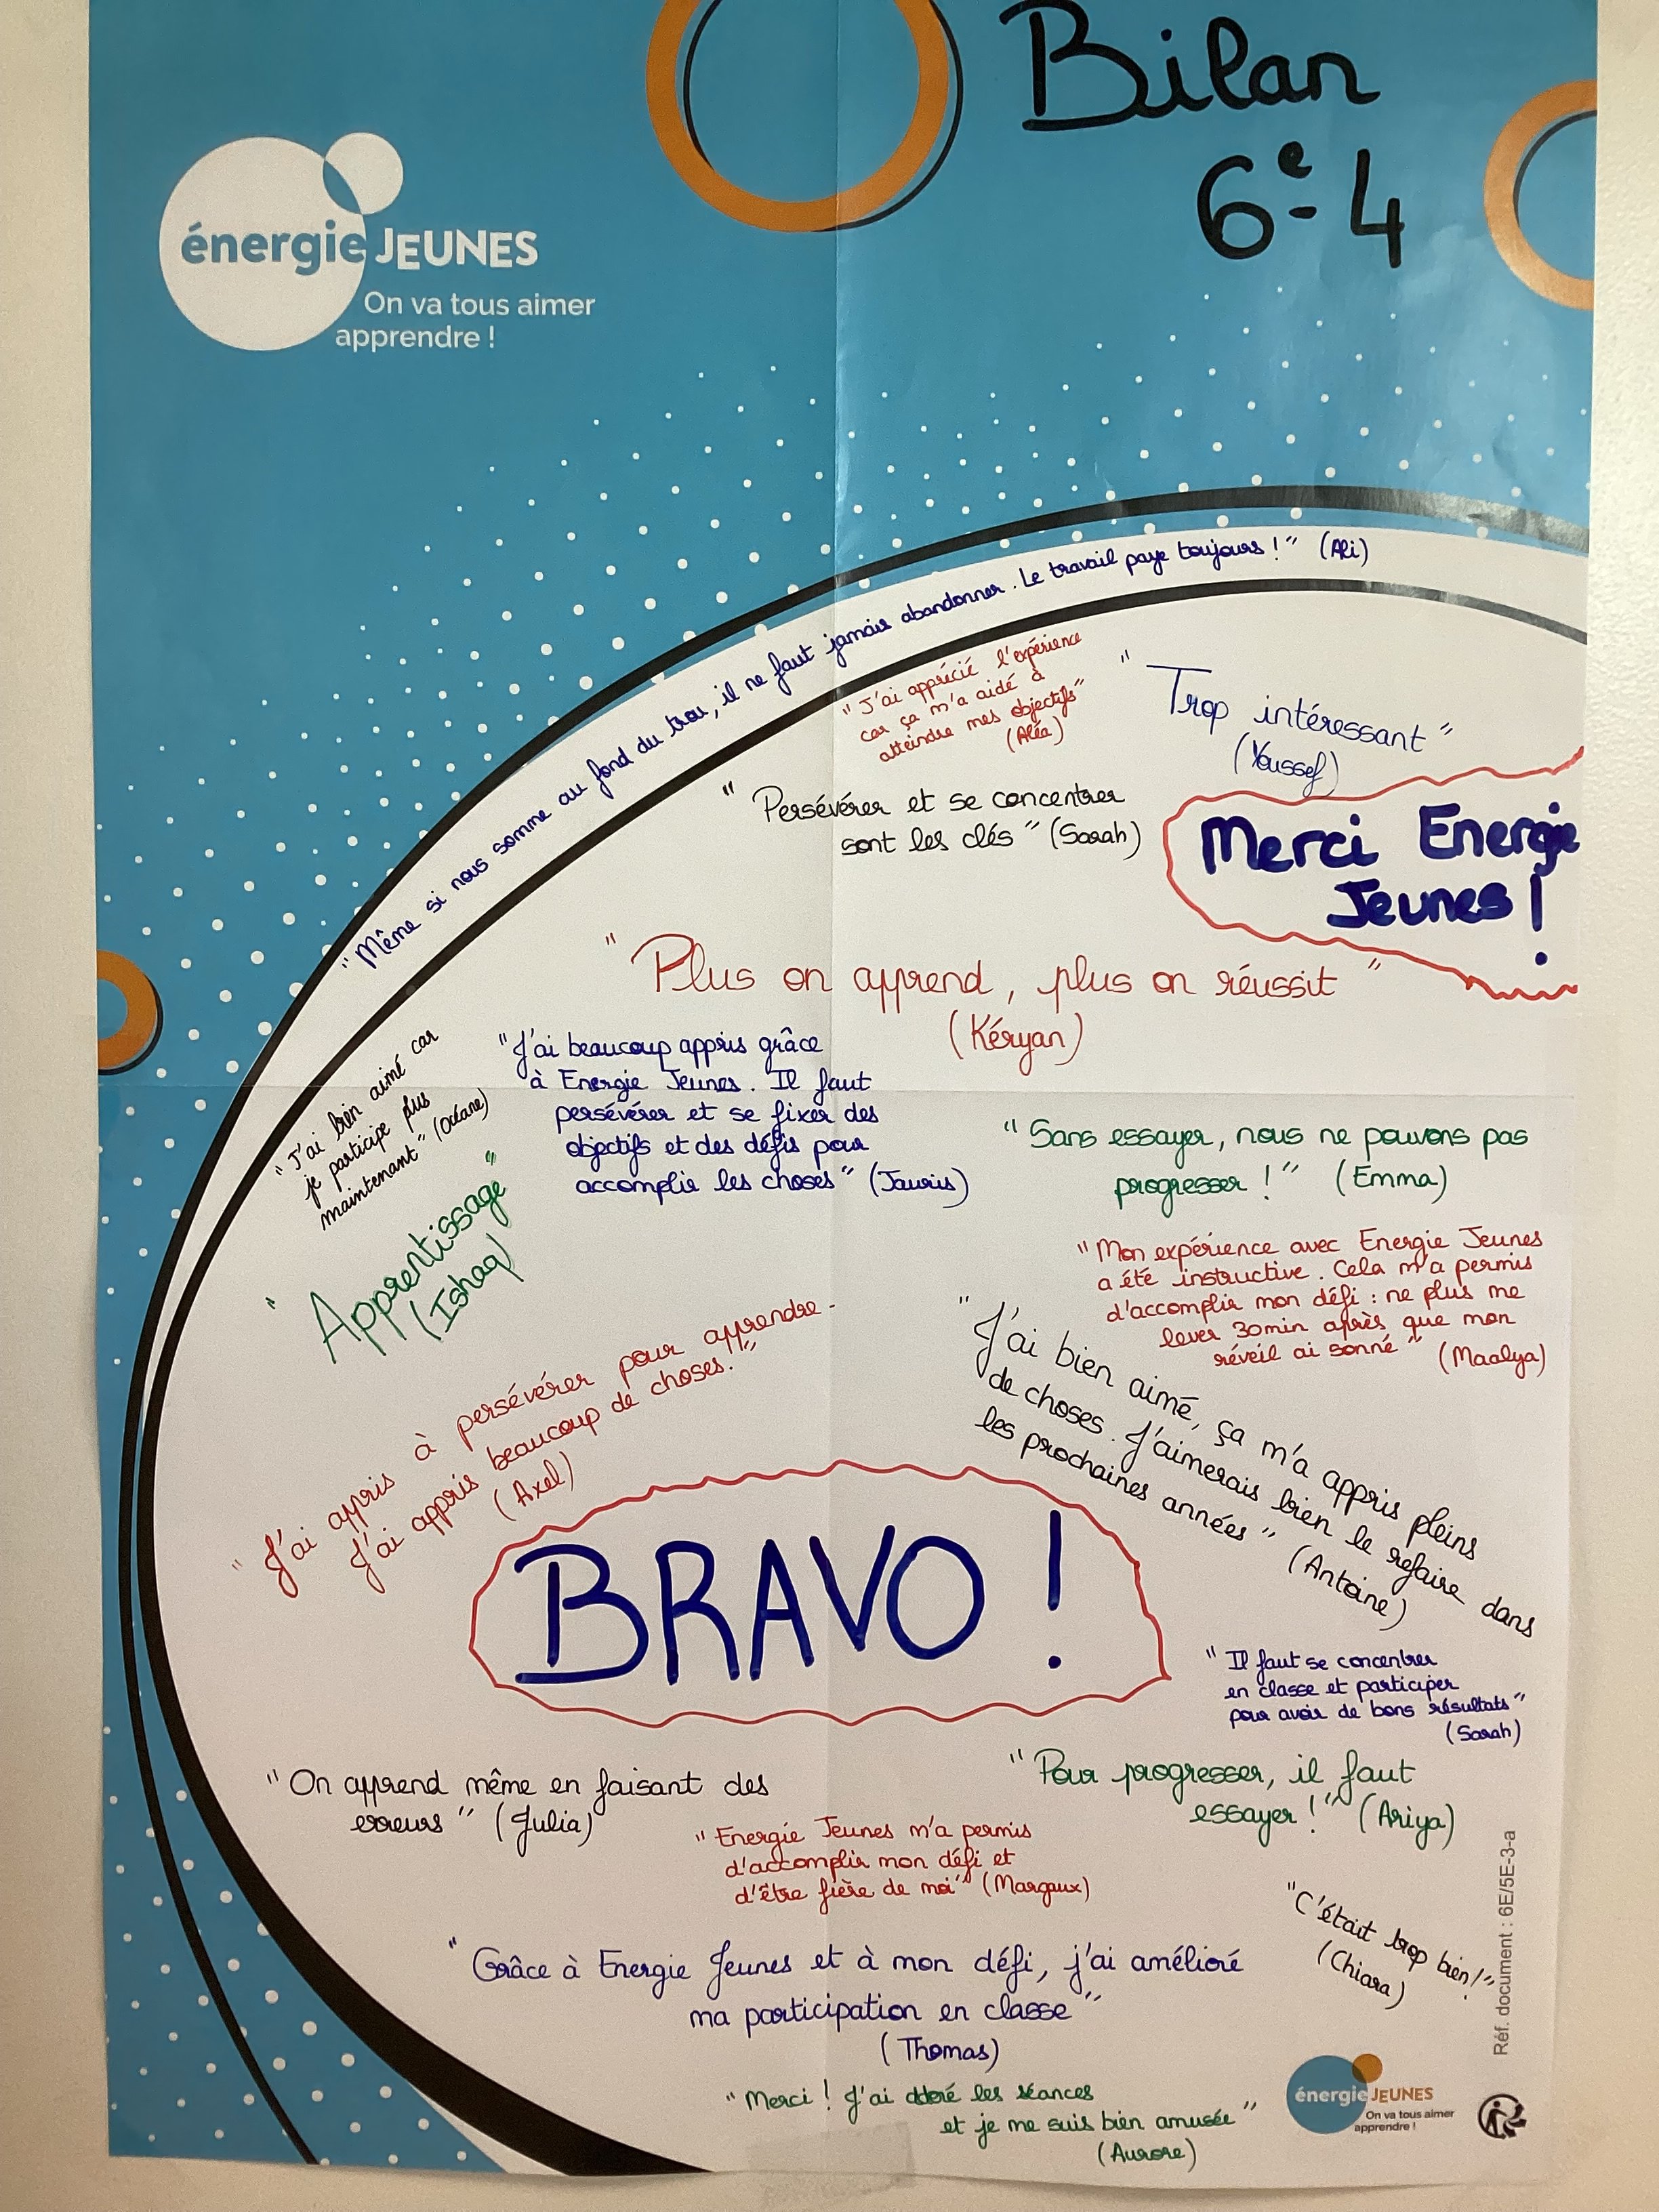 Bilan
6e-4
énergie JEUNES
On va tous aimer
apprendre !
"Même si nous somme au fond du trou, il ne faut jamais abandonner. Le travail paye toujours !" (Ali)
"J'ai apprécié l'expérience
car ça m'a aidé à
atteindre mes objectifs"
(Aléa)
"Trop intéressant"
(Youssef)
"Persévérer et se concentrer
sont les clés" (Sarah)
Merci Energie
Jeunes !
"Plus on apprend, plus on réussit"
(Kéryan)
"J'ai bien aimé car
je participe plus
maintenant" (Océane)
"J'ai beaucoup appris grâce
à Energie Jeunes. Il faut
persévérer et se fixer des
objectifs et des défis pour
accomplir les choses" (Jauris)
"Sans essayer, nous ne pouvons pas
progresser !" (Emma)
"Apprentissage"
(Ishaq)
"Mon expérience avec Energie Jeunes
a été instructive. Cela m'a permis
d'accomplir mon défi : ne plus me
lever 30min après que mon
réveil ai sonné" (Maalya)
"J'ai appris à persévérer pour apprendre.
J'ai appris beaucoup de choses."
(Axel)
"J'ai bien aimé, ça m'a appris pleins
de choses. J'aimerais bien le refaire dans
les prochaines années" (Antoine)
BRAVO !
"Il faut se concentrer
en classe et participer
pour avoir de bons résultats"
(Sarah)
"On apprend même en faisant des
erreurs" (Julia)
"Pour progresser, il faut
essayer !" (Ariya)
"Energie Jeunes m'a permis
d'accomplir mon défi et
d'être fière de moi" (Margaux)
"C'était trop bien!"
(Chiara)
"Grâce à Energie Jeunes et à mon défi, j'ai amélioré
ma participation en classe"
(Thomas)
"Merci ! J'ai adoré les séances
et je me suis bien amusée"
(Aurore)
énergie JEUNES
On va tous aimer
apprendre !
Réf. document : 6E/5E-3-a